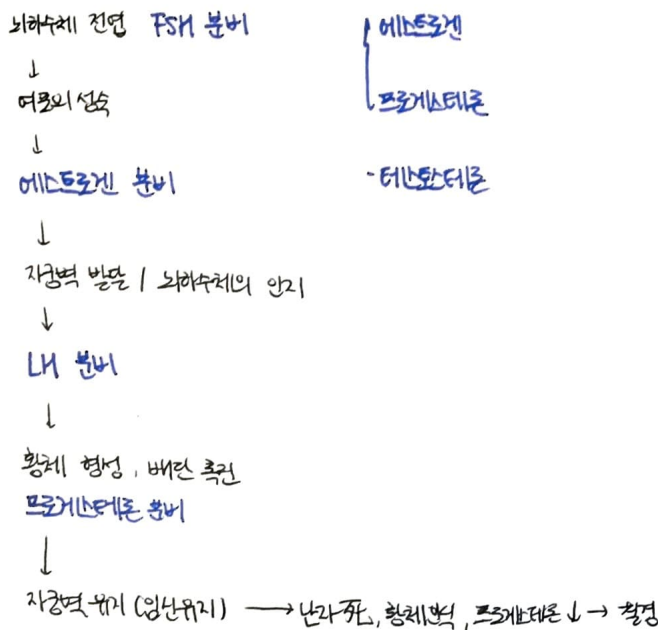 뇌하수체 전엽 FSH 분비
↓
여포의 성숙
↓
에스트로겐 분비
↓
자궁벽 발달 / 뇌하수체의 인지
↓
LH 분비
↓
황체 형성, 배란 촉진
프로게스테론 분비
↓
자궁벽 유지 (임신유지) → 난자 死, 황체 퇴화, 프로게스테론 ↓ → 월경
에스트로겐
프로게스테론
- 테스토스테론